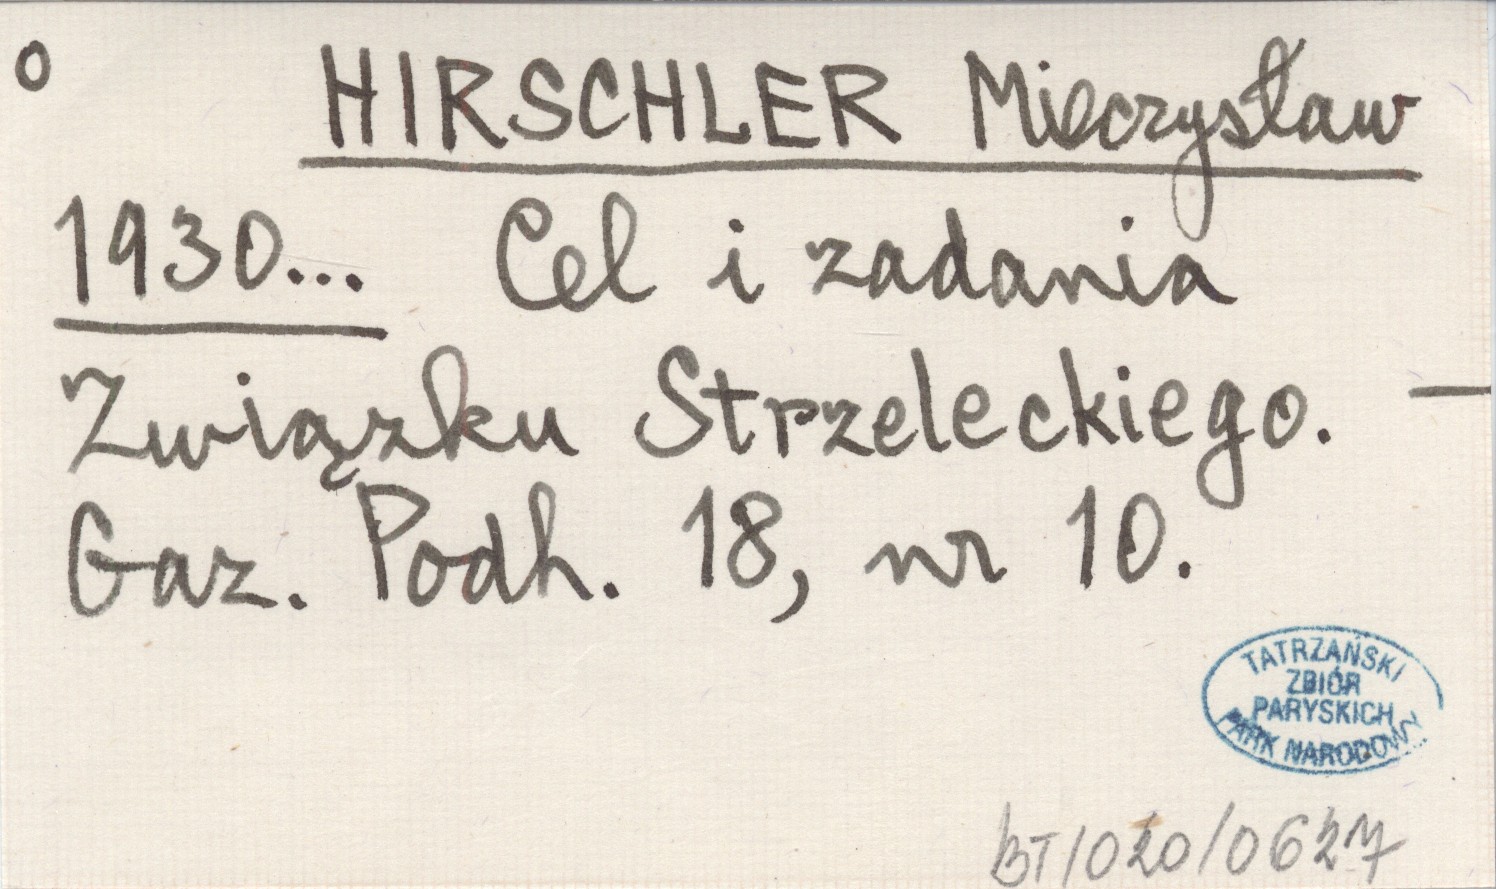 o HIRSCHLER Mieczysław
1930... Cel i zadania
Związku Strzeleckiego. —
Gaz. Podh. 18, nr 10.
TATRZAŃSKI
ZBIÓR
PARYSKICH
PARK NARODOWY
BT/020/0627